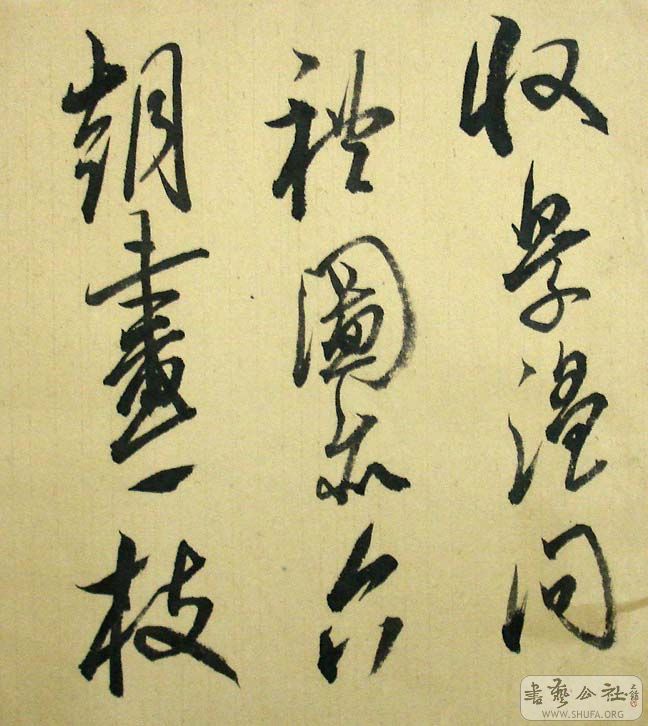 收景温問
禮圖亦六
朝畫一枝
書藝公社
WWW.SHUFA.ORG